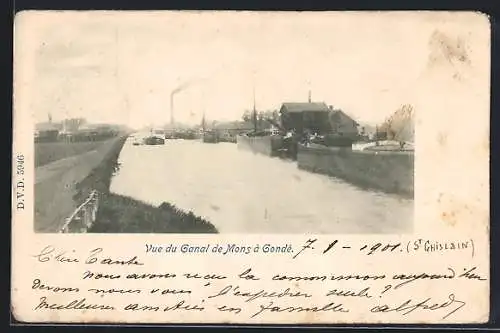 D.V.D. 5946
Vue du Canal de Mons à Condé. 7-8-1901. (St GHISLAIN)
Chère Tante
nous avons reçu la commission aujourd'hui
Devons nous vous l'expédier seule ?
Meilleures amitiés en famille Alfred